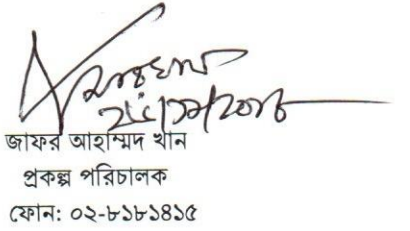 জাফর আহাম্মদ খান
প্রকল্প পরিচালক
ফোন: ০২-৮১৮১৪১৫